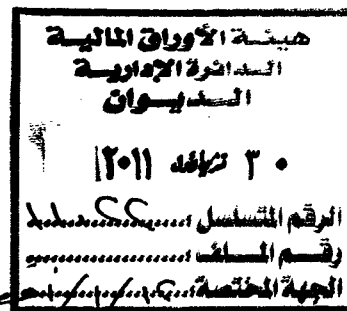 هيئة الأوراق المالية
الدائرة الإدارية
الديوان
٣٠ ٢٠١١
الرقم المتسلسل
رقم الملف
الجهة المختصة